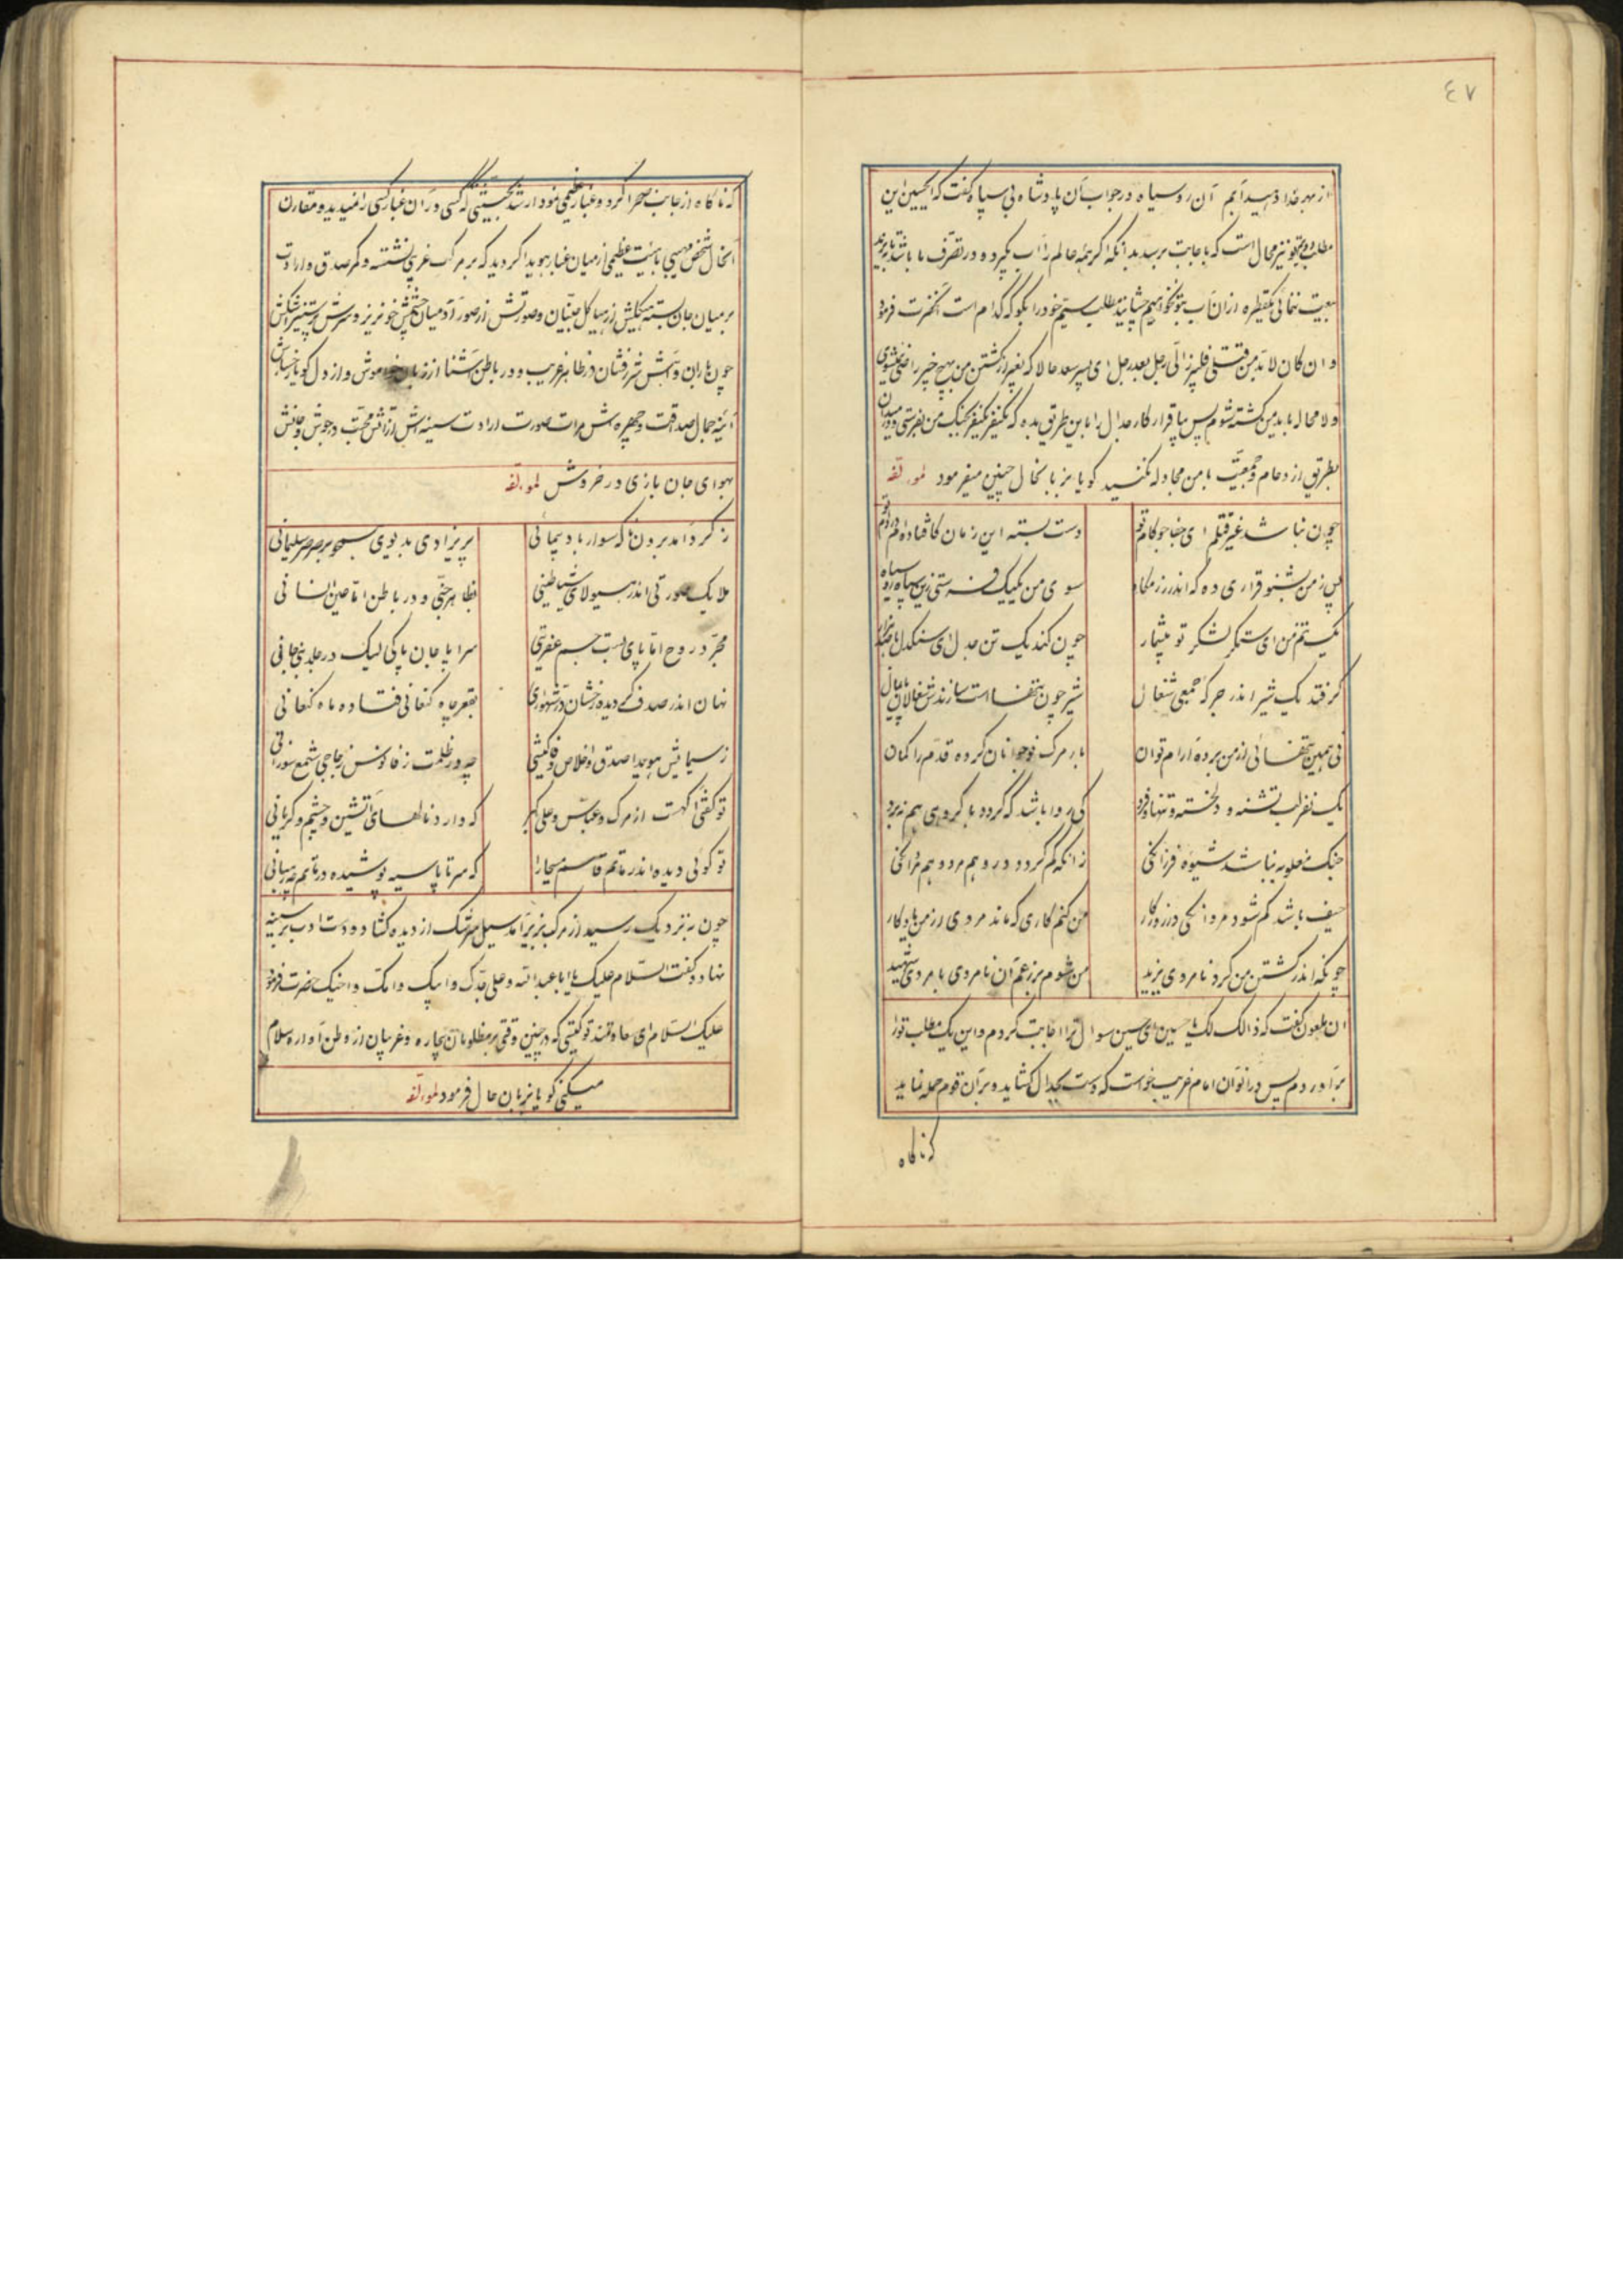 ٤٧
از بهر خدا دهید آبم آن رو سیاه در جواب آن پادشاه بی سپاه گفت که ایحسین این
مطلب دویم تو نیز محال است که باجابت برسد بدانکه اگر همهٔ عالم را آب بگیرد و در تصرف ما باشد تا با یزید
بیعت ننمائی یکقطره از آن آب بتو نخواهیم چشانید مطلب سیم خود را بگو که کدام است آنحضرت فرمود
و ان کان لابد من قتلی فلیبرز الی رجل بعد رجل ای پسر سعد حالا که بغیر از کشتن من بهیچ خیر راضی نمیشوی
و لا محاله باید من کشته شوم پس بیا قرار کار جدال را باین طریق بده که یکنفر یکنفر بجنگ من بفرستی و
بطریق ازدحام و جمعیت با من مجادله نکنید گویا بزبانحال چنین میفرمود لمؤلفه
چون نباشد غیر قتلم ای جفا جو کام تو
دست بسته این زمان کافتاده‌ام در دام تو
پس ز من بشنو قراری ده که اندر رزمگاه
سوی من یک یک فرستی زین سپاه رو سیاه
یک تنم من ای ستمگر لشکر تو بیشمار
چون کند یک تن جدل ای سنگدل با صد هزار
گر فتد یک شیر اندر جرگهٔ جمعی شغال
شیر چون تنها است سازندش شغالان پایمال
نی همین تنهائی از من برده آرام توان
بار مرک نوجوانان کرده قدم را کمان
یک نفر لب تشنه و دلخسته و تنها و فرد
کی روا باشد که گردد با گروهی هم نبرد
جنگ مغلوبه نباشد شیوه فرزانگی
زانکه گم گردد در و هم مرد و هم مردانگی
حیف باشد گم شود مردانگی در روزگار
من کنم کاری که ماند مردی از من یادگار
چونکه اندر کشتن من کرد نامردی یزید
من شوم بر زعم آن نامردی با مردی شهید
آن ملعون گفت که ذالک لک یا حسین ای حسین سوال ترا اجابت کردم و این یک مطلب تو را
برآوردم پس در آنوان امام غریب خواست که دست بجدال گشاید و بر آن قوم حمله نماید
که ناگاه
که ناگاه از جانب صحرا گرد و غبار عظیمی نمودار شد بحیثیتی که کسی در آن غبار کسی را نمیدید و مقارن
انحال شخص مهیبی با هیئت عظیمی از میان غبار هویدا گردید که بر مرکب غریبی نشسته و کمر صدق و ارادت
بر میان جان بسته هیکلش از هیاکل جنیان و صورتش از صور آدمیان چشمش خونریز و سرشک
چون باران و آهش شررفشان در ظاهر غریب و در باطن آشنا از زبان خاموش و از دل گویا
آئینه جمال صداقت و چهره‌ش مرات صورت ارادت سینه‌اش از آتش محبت در جوش و جانش
بهوای جان بازی در خروش لمؤلفه
ز گرد آمد برون ناگه سوار باد پیمائی
پریزادی بدیوی بر صرصر سلیمانی
ملایک صورتی اندر هیولای شیاطینی
بظاهر جنی و در باطن اما عین انسانی
مجرد روح اما پای بست جسم عفریتی
سراپا جان پاکی لیک در جلد بنی جانی
نهان اندر صدف دیده رخشان در شهواری
بقعر چاه کنعانی فتاده ماه کنعانی
ز سیمایش هویدا صدق و اخلاص و وفا کیشی
چه در ظلمت ز فانوس زجاجی شمع نورانی
تو گفتی آگهست از مرک و عباس و علی اکبر
که دارد نالهای آتشین و چشم و گریانی
تو گوئی دیده اندر ماتم قاسم بیچارا
که سر تا پا سیه پوشیده در ماتم
چون به نزدیک رسید از مرکب بزیر آمد سیل سرشک از دیده گشاد و دست ادب بر سینه
نهاد و گفت السلام علیک یا ابا عبدالله و علی جدک و ابیک و امک و اخیک حضرت فرمود
علیک السلام ای سعادتمند تو کیستی که در چنین وقتی بر مظلومان بیچاره و غریبان از وطن آواره سلام
میکنی گویا بزبان حال فرمود لمؤلفه